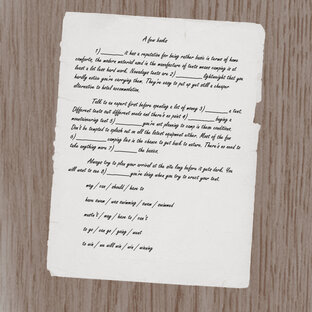 A few books
1) ________ it has a reputation for being rather basic in terms of home
comforts, the modern material used in the manufacture of tents means camping is at
least a lot less hard work. Nowadays tents are 2) ________ lightweight that you
hardly notice you're carrying them. They're easy to put up yet still a cheaper
alternative to hotel accommodation.
Talk to an expert first before spending a lot of money 3) ________ a tent.
Different tents suit different needs and there's no point 4) ________ buying a
mountaineering tent 5) ________ you're not planning to camp in those conditions.
Don't be tempted to splash out on all the latest equipment either. Most of the fun
6) ________ camping lies in the chance to get back to nature. There's no need to
take anything more 7) ________ the basics.
Always try to plan your arrival at the site long before it gets dark. You
will want to see 8) ________ you're doing when you try to erect your tent.
may / can / should / have to
have swum / was swimming / swam / swimmed
mustn't / may / have to / can't
to go / can go / going / went
to win / we will win / win / winning